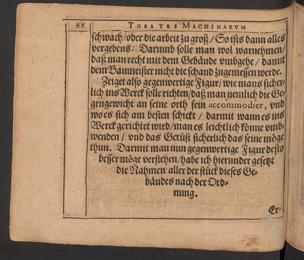 66 THEATRI MACHINARVM
schwach/oder die arbeit zu groß/So ists dann alles
vergebens. Darumb solle man wol warnehmen/
daß man recht mit dem Gebäude umbgehe/damit
dem Baumeister nicht die schand zugemessen werde.
Zeiget also gegenwertige Figur/wie mans sicher-
lich ins Werck solle richten/daß man nemlich die Ge-
gengewicht an seine orth fein accommodier, vnd
wo es sich am besten schickt/darmit wann es ins
Werck gerichtet wird/man es leichtlich könne vmb-
wenden/vnd das Gerüst sicherlich das seine möge
thun. Darmit man nun gegenwertige Figur desto
besser möge verstehen/habe ich hierunder gesetzt
die Nahmen aller der stück dieses Ge-
bäudes nach der Ord-
nung.
Er-